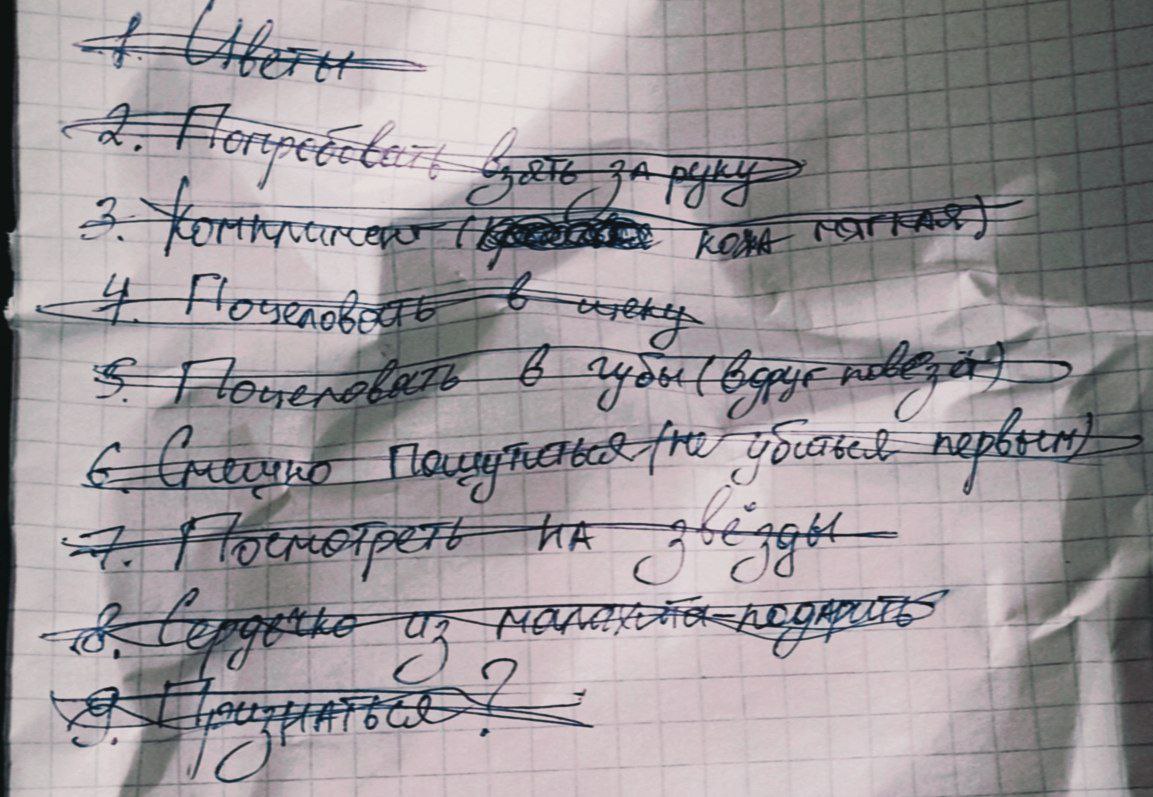 1. Цветы
2. Попробовать взять за руку
3. Комплимент ( кожа мягкая)
4. Поцеловать в щеку
5. Поцеловать в губы (вдруг повезёт)
6. Смешно пошутить (не убиться первым)
7. Посмотреть на звёзды
8. Сердечко из малахита подарить
9. Признаться?